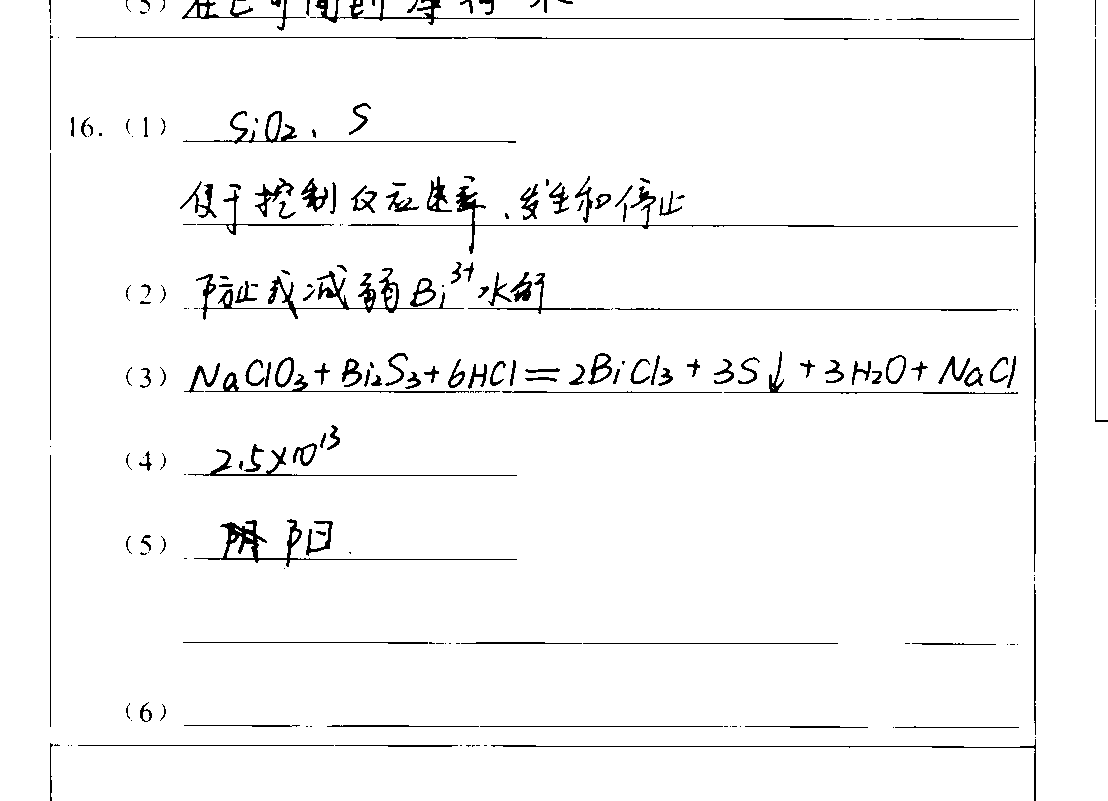 16.（1） SiO₂、S
便于控制反应速率、发生和停止
（2） 防止或减弱Bi³⁺水解
（3） NaClO₃+Bi₂S₃+6HCl=2BiCl₃+3S↓+3H₂O+NaCl
（4） 2.5×10¹³
（5） 阳
（6）